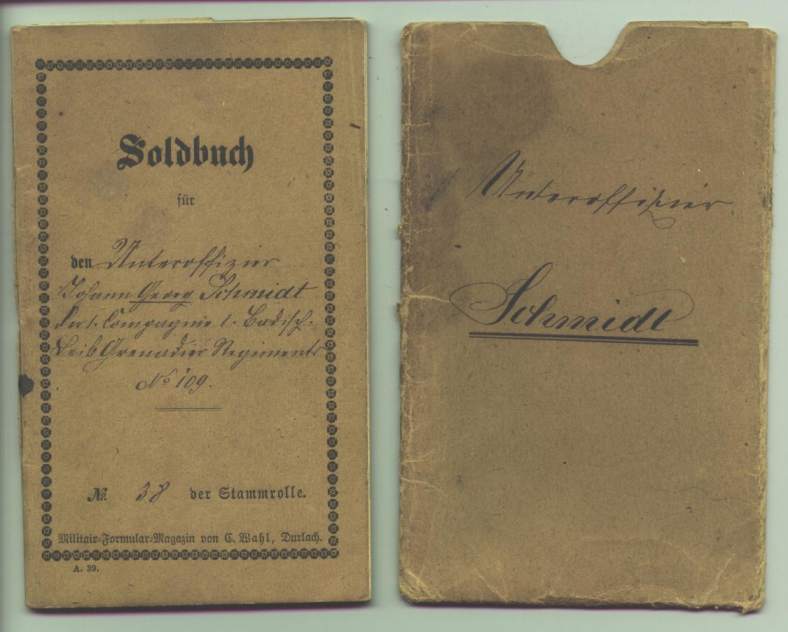 Soldbuch
für
den Unteroffizier
Johann Georg Schmidt
der 1. Compagnie 1. Badisch.
Leib Grenadier Regiments
No 109.
№ 38 der Stammrolle.
Militair-Formular-Magazin von C. Wahl, Durlach.
A. 39.
Unteroffizier
Schmidt